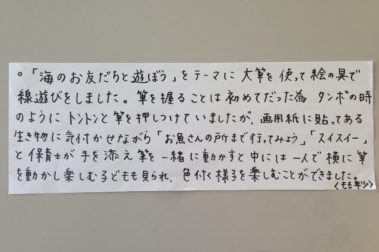 。「海のお友だちと遊ぼう」をテーマに 大筆を使って絵の具で
線遊びをしました。筆を握ることは初めてだった為 タンポの時
のように トントンと筆を押しつけていましたが、画用紙に貼ってある
生き物に気付かせながら「お魚さんの所まで行ってみよう」「スイスイー」
と保育士が手を添え筆を一緒に動かすと中には一人で横に筆
を動かし楽しむ子どもも見られ、色付く様子を楽しむことができました。